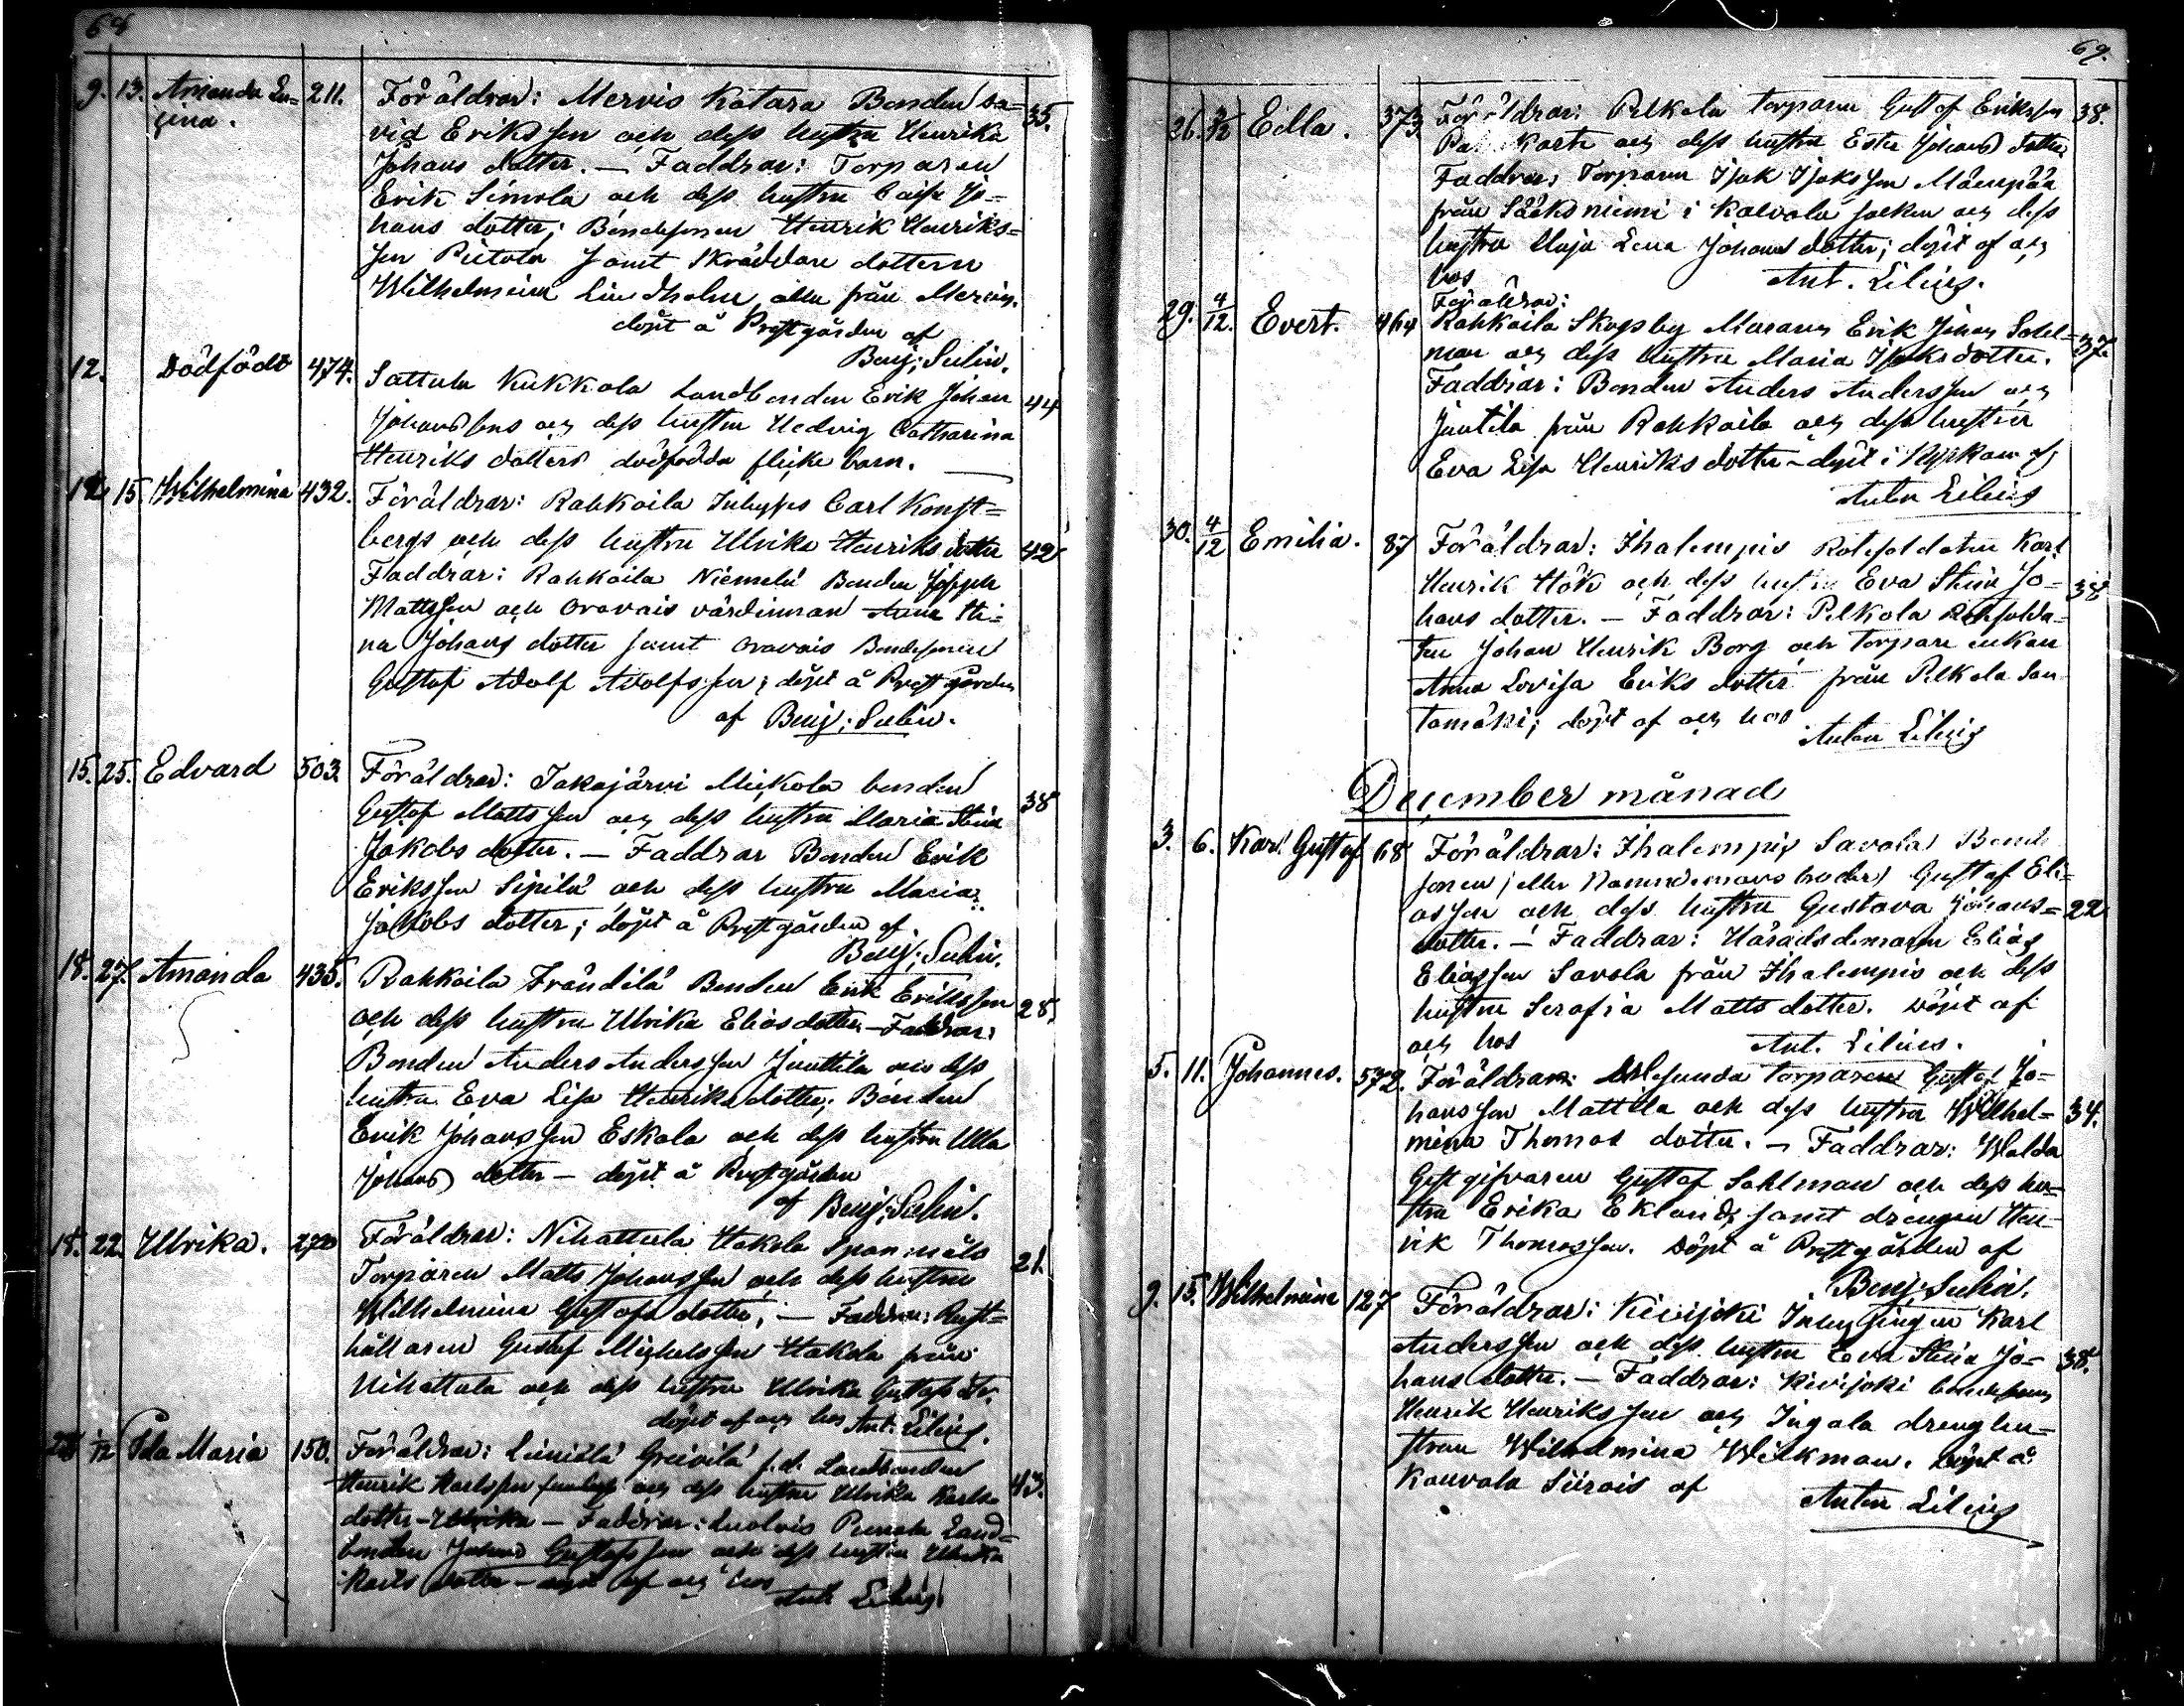 69.
9. 13. Amanda Eu= 211. Föräldrar: Mervis Katara Bonden Da= 35.
gina. vid Eriksson och dess hustru Henrika
Johans dotter. — Faddrar: Torparen
Erik Simola och dess hustru Caisa Jo=
hans dotter; Bondesonen Henrik Henriks=
son Pietola samt Skräddare dottern
Wilhelmina Lindholm alla från Mervis.
döpt å Prestgården af
Benj: Sulin.
12. Dödfödt 474. Sattula Kukkola Landbonden Erik Johan 44
Johanssons och dess hustru Hedvig Catharina
Henriks dotters dödfödda flicke barn.
12 15 Wilhelmina 432. Föräldrar: Rahkoila Inhyses Carl Konst=
bergs och dess hustru Ulrika Henriks dotter 42
Faddrar: Rahkoila Niemelä Bonden Joseph
Mattsson och Oravais värdinnan Anna Sti=
na Johans dotter samt Oravais Bondesonen
Gustaf Adolf Adolfsson; döpt å Prestgården
af Benj: Sulin.
15. 25. Edvard 503. Föräldrar: Takajärvi Mickola bonden
Gustaf Mattsson och dess hustru Maria Stina 38
Jakobs dotter. — Faddrar Bonden Erik
Eriksson Sipilä och dess hustru Maria
Jakobs dotter; döpt å Prestgården af
Benj: Sulin.
18. 27. Amanda 435. Rahkoila Frändilä Bonden Erik Eriksson 28.
och dess hustru Ulrika Elias dotter — Faddrar:
Bonden Anders Andersson Juuttila och dess
hustru Eva Lisa Henriks dotter; Bonden
Erik Johansson Eskola och dess hustru Ulla
Johans dotter — döpt å Prestgården
af Benj: Sulin.
18. 22. Ulrika. 220 Föräldrar: Nihattula Hakola Spannmåls
Torparen Matts Johansson och dess hustru 21.
Wilhelmina Gustafs dotter; — Faddrar: Rust=
hållaren Gustaf Michelsson Hakola från
Nihattula och dess hustru Ulrika Gustafs dr.
döpt af och hos Ant: Lilius.
1/12 Ida Maria 150. Föräldrar: Greivilä f.d. Landbonden
Henrik Karlsson och dess hustru Ulrika Karls 43.
dotter — Ulrika — Faddrar: Land=
bonden Johan Gustafsson och dess hustru Ulrika
Karls dotter — döpt af och hos
Ant Lilius
26. 3/12 Edla. 373. Föräldrar: Pelkola torparen Gustaf Eriksson 38.
och dess hustru Ester Johans dotter
Faddrar: Torparen Isak Isaksson Mäenpää
från Sääksniemi i Kalvola socken och dess
hustru Maja Lena Johans dotter; döpt af och
hos Ant. Lilius.
Föräldrar:
29. 4/12. Evert. 464 Rahkoila Skogsby Muraren Erik Johan Sahl= 37.
man och dess hustru Maria Isaks dotter.
Faddrar: Bonden Anders Andersson
Juutila från Rahkoila och dess hustru
Eva Lisa Henriks dotter — döpt i Kyrkan af
Anton Lilius
30. 4/12 Emilia. 87 Föräldrar: Ihalempis Rotesoldaten Karl
Henrik Hök och dess hustru Eva Stina Jo= 38
hans dotter. — Faddrar: Pelkola Rotesolda=
ten Johan Henrik Borg och torpare enkan
Anna Lovisa Eriks dotter från Pelkola San
tamäki; döpt af och hos
Anton Lilius
December månad
3. 6. Karl Gustaf 68 Föräldrar: Ihalempis Savola Bonde
sonen (eller Nämndemans broder) Gustaf Eli=
asson och dess hustru Gustava Johans= 22
dotter. — Faddrar: Häradsdomaren Elias
Eliasson Savola från Ihalempis och dess
hustru Serafia Matts dotter. Döpt af
och hos Ant. Lilius.
5. 11. Johannes. 572. Föräldrar: torparen Gustaf Jo=
hansson Mattila och dess hustru Wilhel= 34.
mina Thomas dotter. — Faddrar: Walda
Gästgifvaren Gustaf Sahlman och dess hu=
stru Erika Eklund, samt drengen Hen
rik Thomasson. Döpt å Prestgården af
Benj: Sulin.
9. 15. Wilhelmina 127 Föräldrar: Kivijoki Inhysingen Karl
Andersson och dess hustru Eva Stina Jo= 38.
hans dotter. — Faddrar: Kivijoki bondesonen
Henrik Henriksson och Ingala drenghu=
strun Wilhelmina Wikman. Döpt å
Kouvola Siirois af
Anton Lilius